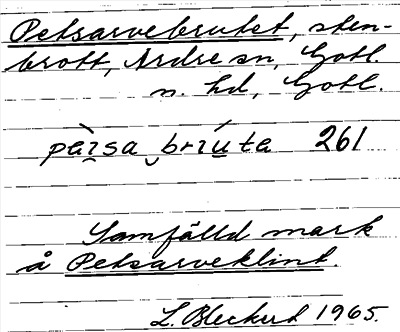 Petsarvebrutet, sten-
brott, Ardre sn, Gotl.
n. hd, Gotl.
pàɪ̯sa ‿ brɪ́u̲ta 261
Samfälld mark
å Petsarveklint.
L. Bleckert 1965.